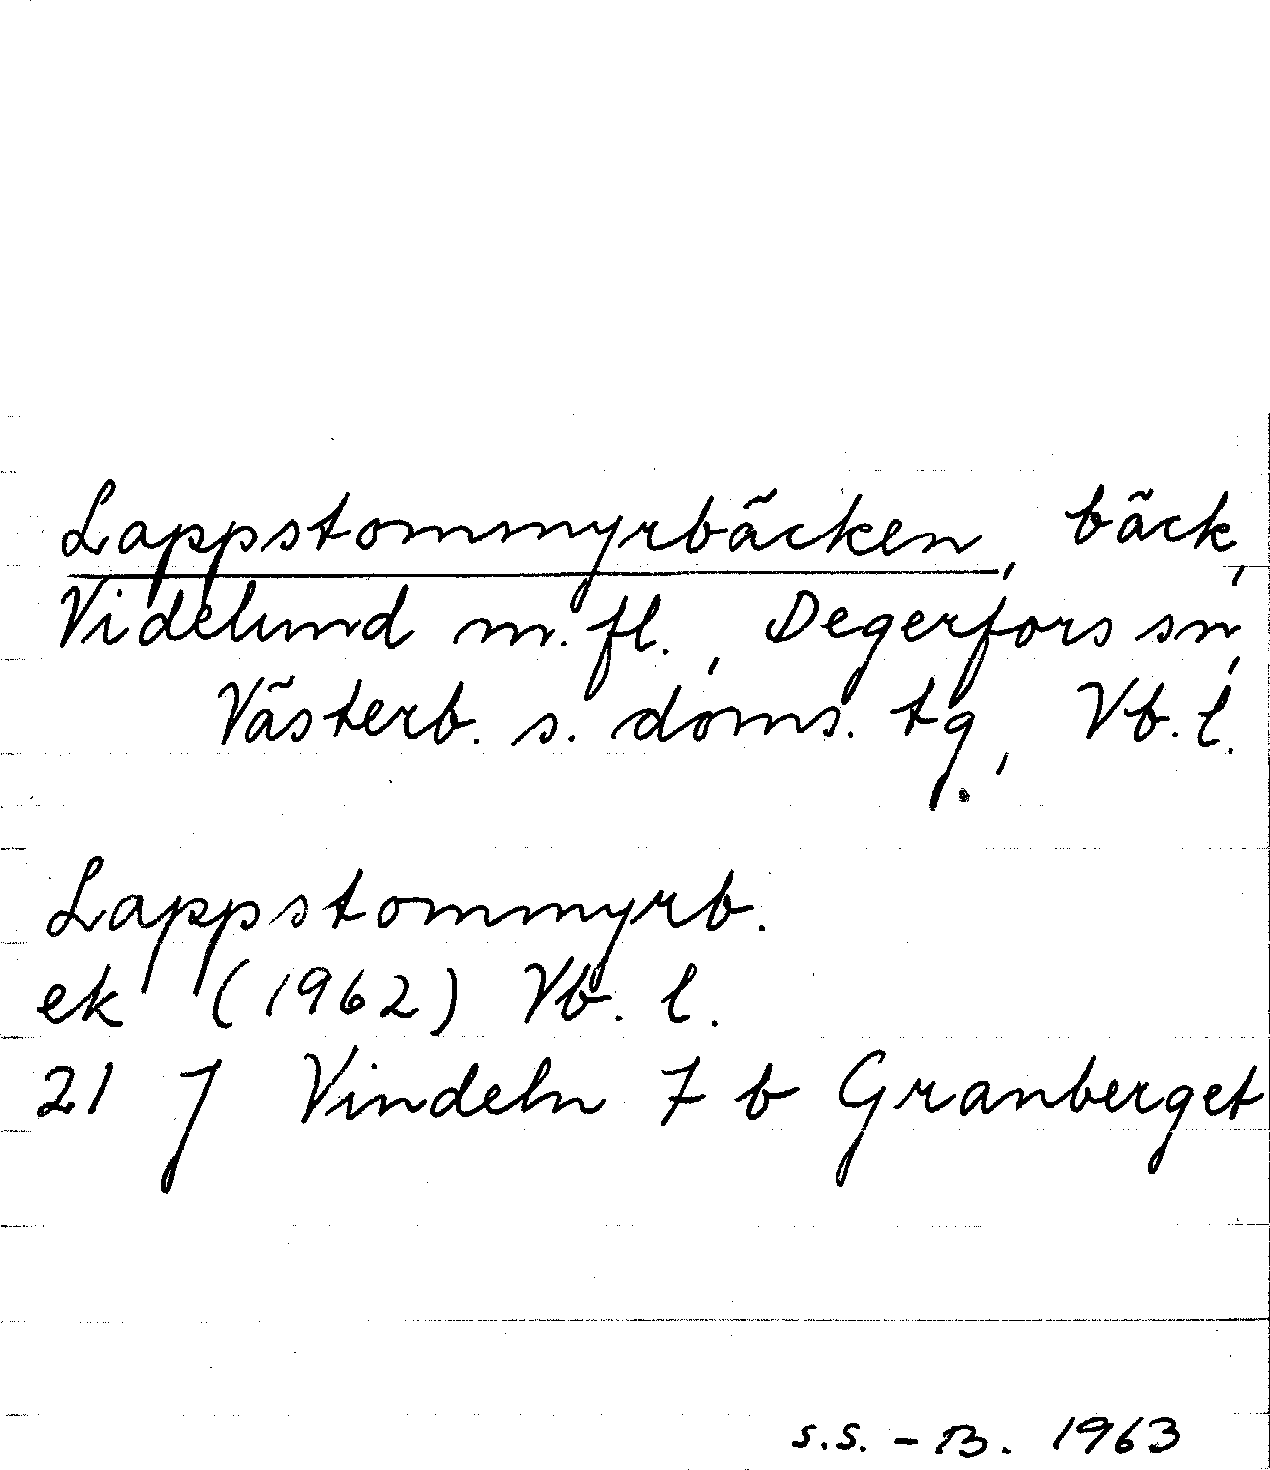 Lappstommyrbäcken, bäck,
Videlund m. fl., Degerfors sn,
Västerb. s. doms. tg, Vb. l.
Lappstommyrb.
ek (1962) Vb. l.
21 J Vindeln 7 b Granberget
S.S. - B. 1963